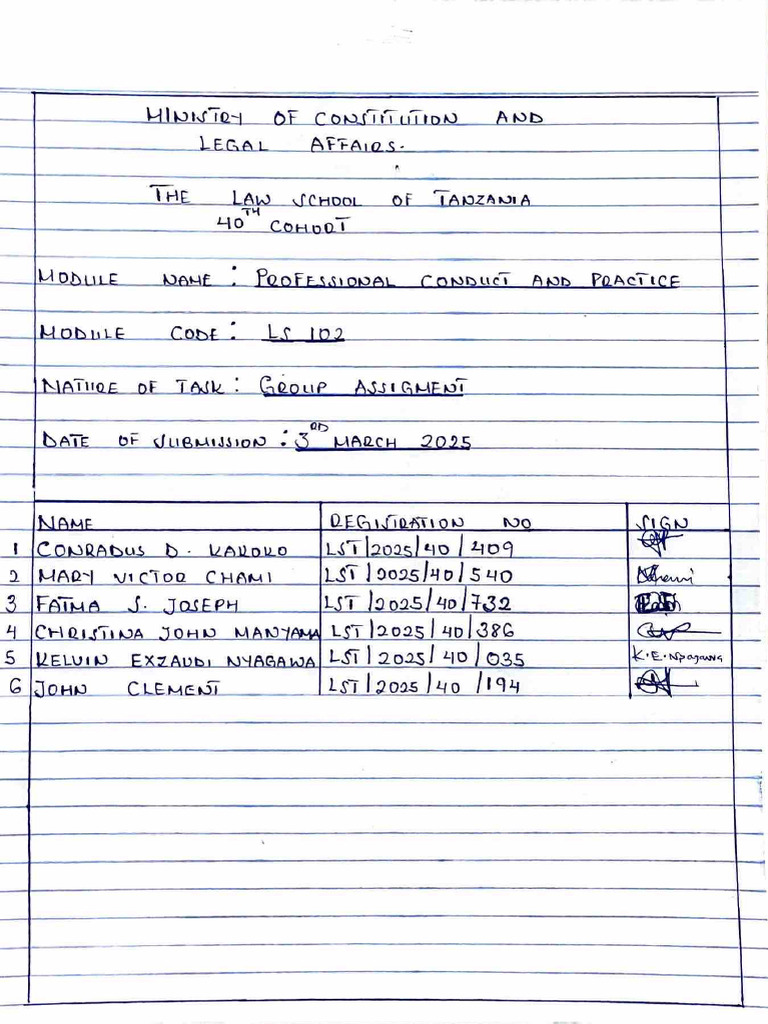 MINISTRY OF CONSTITUTION AND
LEGAL AFFAIRS.
THE LAW SCHOOL OF TANZANIA
40TH COHORT
MODULE NAME: PROFESSIONAL CONDUCT AND PRACTICE
MODULE CODE: LS 102
NATURE OF TASK: GROUP ASSIGMENT
DATE OF SUBMISSION: 3RD MARCH 2025
NAME REGISTRATION NO SIGN
1 CONRADUS D. KAROKO LST/2025/40/409
2 MARY VICTOR CHAMI LST/2025/40/540
3 FATMA S. JOSEPH LST/2025/40/732
4 CHRISTINA JOHN MANYAMA LST/2025/40/386
5 KELVIN EXZAUDI NYAGAWA LST/2025/40/035 K.E.Nyagawa
6 JOHN CLEMENT LST/2025/40/194